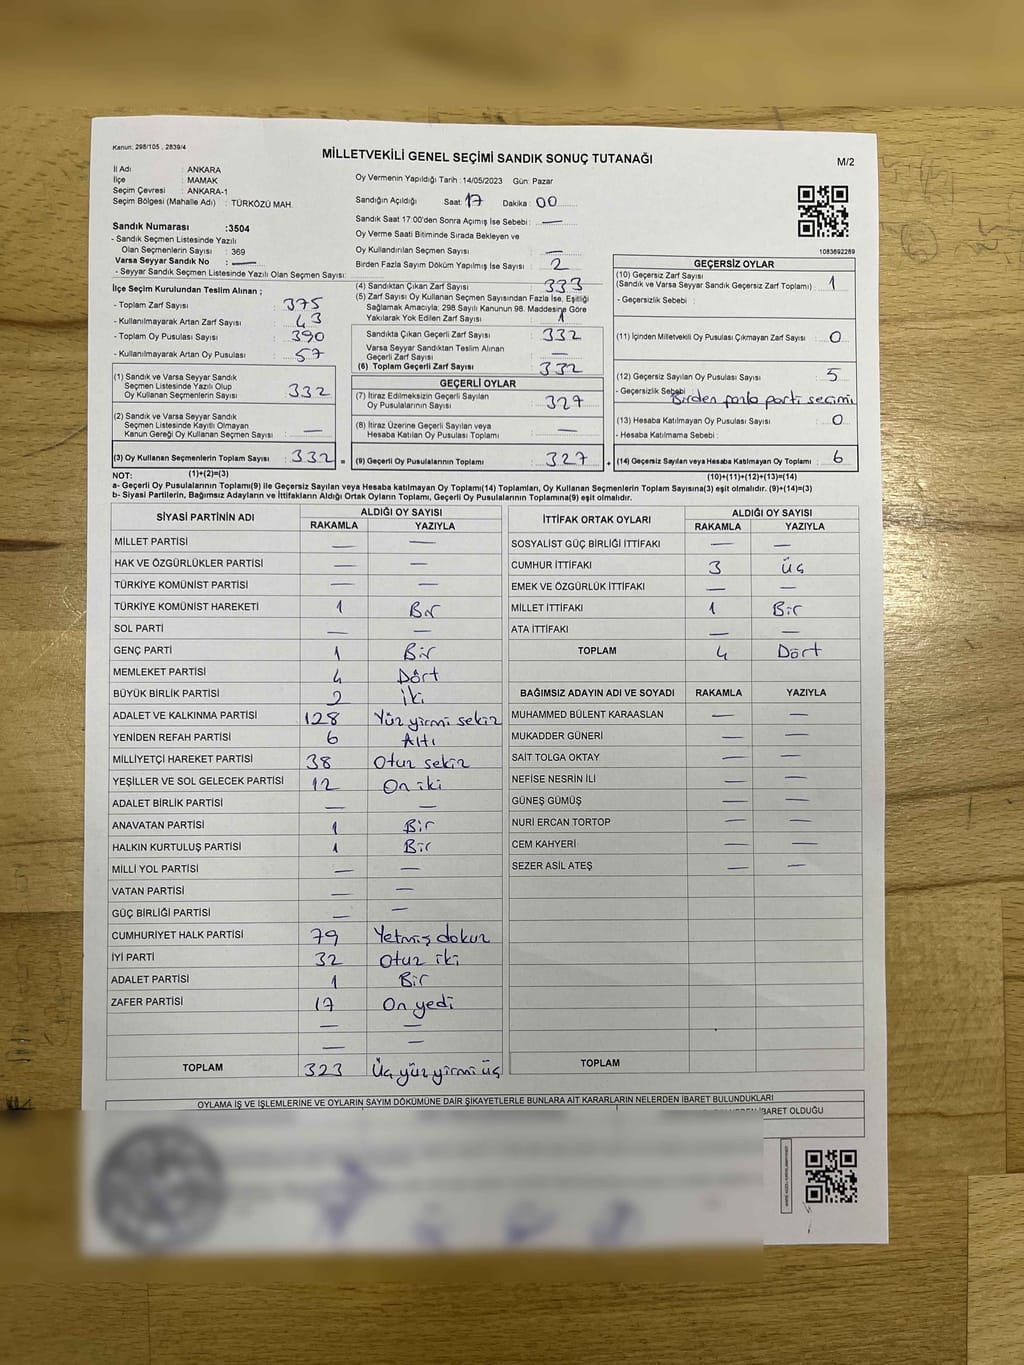 Kanun: 298/105 , 2839/4
MİLLETVEKİLİ GENEL SEÇİMİ SANDIK SONUÇ TUTANAĞI
M/2
İl Adı : ANKARA
İlçe : MAMAK
Seçim Çevresi : ANKARA-1
Seçim Bölgesi (Mahalle Adı) : TÜRKÖZÜ MAH.
Oy Vermenin Yapıldığı Tarih :14/05/2023 Gün: Pazar
Sandığın Açıldığı Saat: 17 Dakika : 00
Sandık Saat 17:00'den Sonra Açımış İse Sebebi : —
Oy Verme Saati Bitiminde Sırada Bekleyen ve
Oy Kullandırılan Seçmen Sayısı : —
Birden Fazla Sayım Döküm Yapılmış İse Sayısı : 2
1083692289
Sandık Numarası :3504
- Sandık Seçmen Listesinde Yazılı
Olan Seçmenlerin Sayısı : 369
Varsa Seyyar Sandık No : —
- Seyyar Sandık Seçmen Listesinde Yazılı Olan Seçmen Sayısı:
İlçe Seçim Kurulundan Teslim Alınan ;
- Toplam Zarf Sayısı : 375
- Kullanılmayarak Artan Zarf Sayısı : 43
- Toplam Oy Pusulası Sayısı : 390
- Kullanılmayarak Artan Oy Pusulası : 57
(1) Sandık ve Varsa Seyyar Sandık
Seçmen Listesinde Yazılı Olup
Oy Kullanan Seçmenlerin Sayısı : 332
(2) Sandık ve Varsa Seyyar Sandık
Seçmen Listesinde Kayıtlı Olmayan
Kanun Gereği Oy Kullanan Seçmen Sayısı : —
(3) Oy Kullanan Seçmenlerin Toplam Sayısı : 332 =
(1)+(2)=(3)
(4) Sandıktan Çıkan Zarf Sayısı : 333
(5) Zarf Sayısı Oy Kullanan Seçmen Sayısından Fazla İse, Eşitliği
Sağlamak Amacıyla; 298 Sayılı Kanunun 98. Maddesine Göre
Yakılarak Yok Edilen Zarf Sayısı : 1
Sandıkta Çıkan Geçerli Zarf Sayısı : 332
Varsa Seyyar Sandıktan Teslim Alınan
Geçerli Zarf Sayısı : —
(6) Toplam Geçerli Zarf Sayısı : 332
GEÇERLİ OYLAR
(7) İtiraz Edilmeksizin Geçerli Sayılan
Oy Pusulalarının Sayısı : 327
(8) İtiraz Üzerine Geçerli Sayılan veya
Hesaba Katılan Oy Pusulası Toplamı : —
(9) Geçerli Oy Pusulalarının Toplamı : 327 +
GEÇERSİZ OYLAR
(10) Geçersiz Zarf Sayısı
(Sandık ve Varsa Seyyar Sandık Geçersiz Zarf Toplamı) : 1
- Geçersizlik Sebebi :
(11) İçinden Milletvekili Oy Pusulası Çıkmayan Zarf Sayısı : 0
(12) Geçersiz Sayılan Oy Pusulası Sayısı : 5
- Geçersizlik Sebebi : Birden fazla parti seçimi
(13) Hesaba Katılmayan Oy Pusulası Sayısı : 0
- Hesaba Katılmama Sebebi :
(14) Geçersiz Sayılan veya Hesaba Katılmayan Oy Toplamı : 6
(10)+(11)+(12)+(13)=(14)
NOT:
a- Geçerli Oy Pusulalarının Toplamı(9) ile Geçersiz Sayılan veya Hesaba katılmayan Oy Toplamı(14) Toplamları, Oy Kullanan Seçmenlerin Toplam Sayısına(3) eşit olmalıdır. (9)+(14)=(3)
b- Siyasi Partilerin, Bağımsız Adayların ve İttifakların Aldığı Ortak Oyların Toplamı, Geçerli Oy Pusulalarının Toplamına(9) eşit olmalıdır.
SİYASİ PARTİNİN ADI ALDIĞI OY SAYISI
RAKAMLA YAZIYLA
MİLLET PARTİSİ — —
HAK VE ÖZGÜRLÜKLER PARTİSİ — —
TÜRKİYE KOMÜNİST PARTİSİ — —
TÜRKİYE KOMÜNİST HAREKETİ 1 Bir
SOL PARTİ — —
GENÇ PARTİ 1 Bir
MEMLEKET PARTİSİ 4 Dört
BÜYÜK BİRLİK PARTİSİ 2 iki
ADALET VE KALKINMA PARTİSİ 128 Yüz yirmi sekiz
YENİDEN REFAH PARTİSİ 6 Altı
MİLLİYETÇİ HAREKET PARTİSİ 38 Otuz sekiz
YEŞİLLER VE SOL GELECEK PARTİSİ 12 On iki
ADALET BİRLİK PARTİSİ — —
ANAVATAN PARTİSİ 1 Bir
HALKIN KURTULUŞ PARTİSİ 1 Bir
MİLLİ YOL PARTİSİ — —
VATAN PARTİSİ — —
GÜÇ BİRLİĞİ PARTİSİ — —
CUMHURİYET HALK PARTİSİ 79 Yetmiş dokuz
İYİ PARTİ 32 Otuz iki
ADALET PARTİSİ 1 Bir
ZAFER PARTİSİ 17 On yedi
— —
— —
TOPLAM 323 Üç yüz yirmi üç
İTTİFAK ORTAK OYLARI ALDIĞI OY SAYISI
RAKAMLA YAZIYLA
SOSYALİST GÜÇ BİRLİĞİ İTTİFAKI — —
CUMHUR İTTİFAKI 3 Üç
EMEK VE ÖZGÜRLÜK İTTİFAKI — —
MİLLET İTTİFAKI 1 Bir
ATA İTTİFAKI — —
TOPLAM 4 Dört
BAĞIMSIZ ADAYIN ADI VE SOYADI RAKAMLA YAZIYLA
MUHAMMED BÜLENT KARAASLAN — —
MUKADDER GÜNERİ — —
SAİT TOLGA OKTAY — —
NEFİSE NESRİN İLİ — —
GÜNEŞ GÜMÜŞ — —
NURİ ERCAN TORTOP — —
CEM KAHYERİ — —
SEZER ASİL ATEŞ — —
TOPLAM
OYLAMA İŞ VE İŞLEMLERİNE VE OYLARIN SAYIM DÖKÜMÜNE DAİR ŞİKAYETLERLE BUNLARA AİT KARARLARIN NELERDEN İBARET BULUNDUKLARI
İBARET OLDUĞU